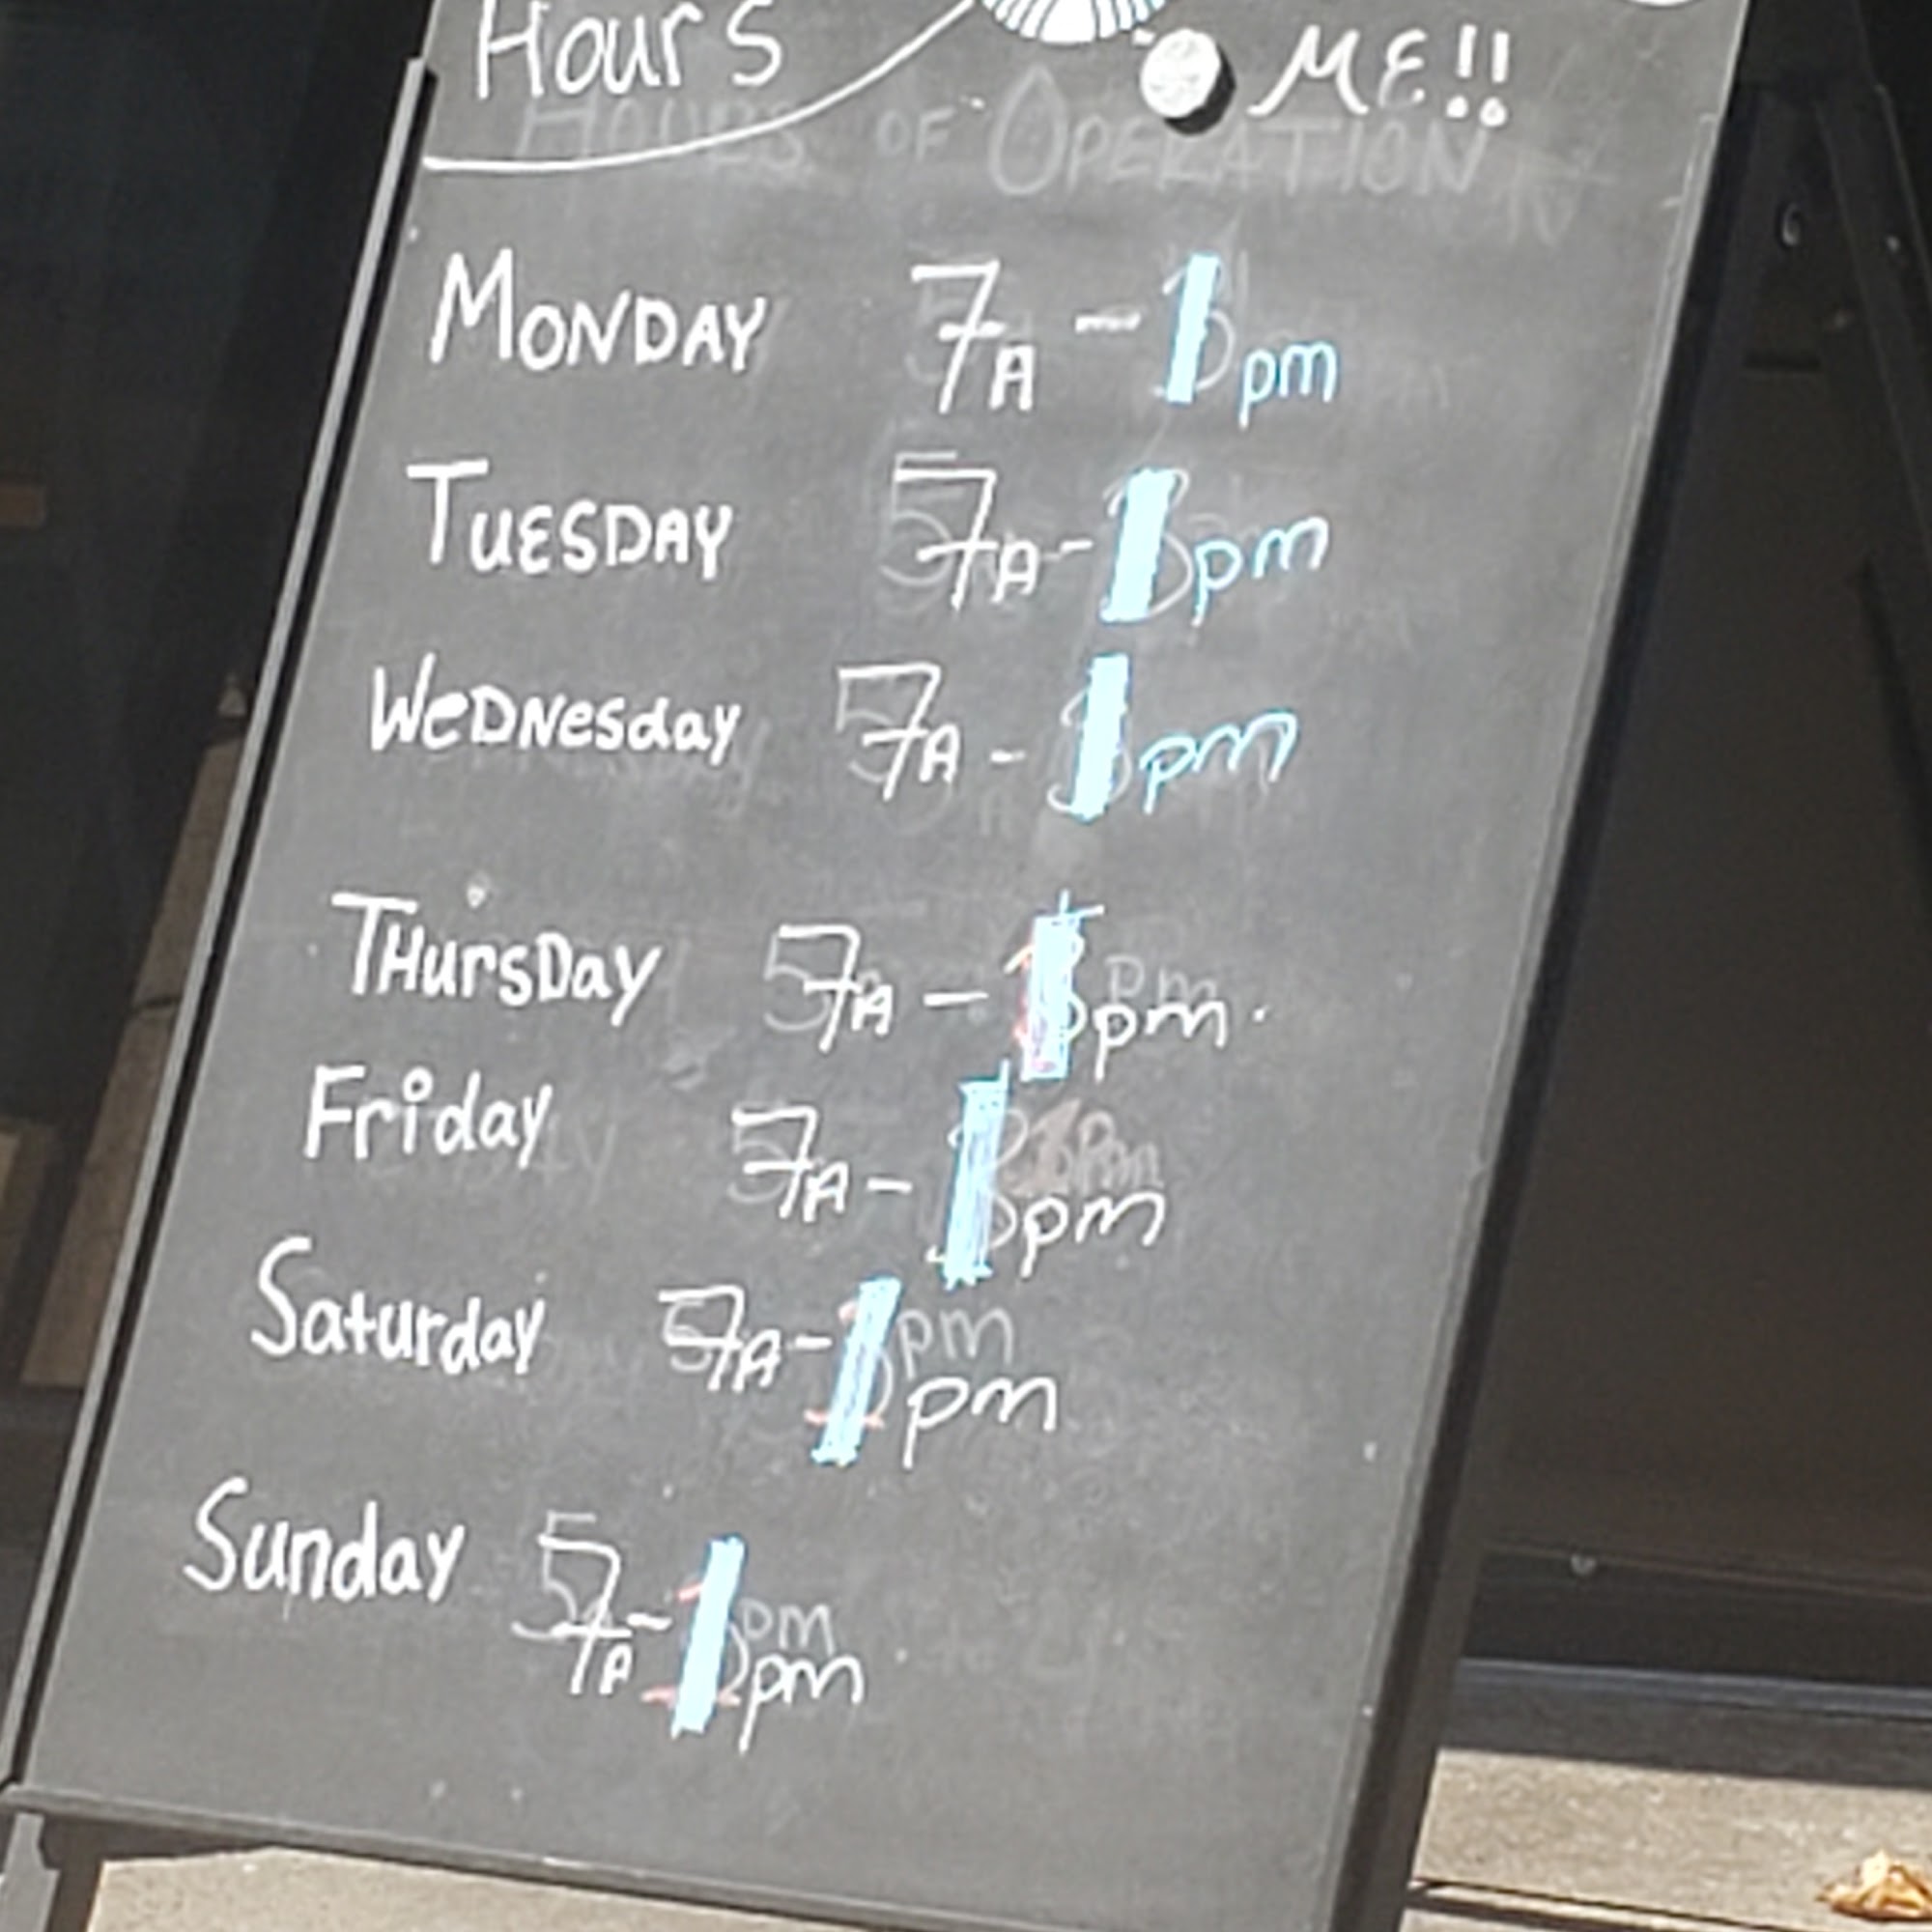 Hours
ME!!
HOURS OF OPERATION
MONDAY 7A - 1pm
TUESDAY 7A - 1pm
WeDNesday 7A - 1pm
THursDay 7A - 1pm
Friday 7A - 1pm
Saturday 7A - 1pm
Sunday 7A - 1pm